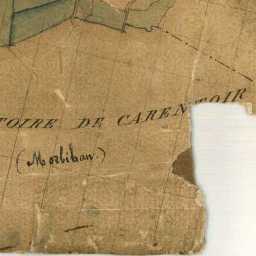 TOIRE DE CARENTOIR
(Morbihan.)